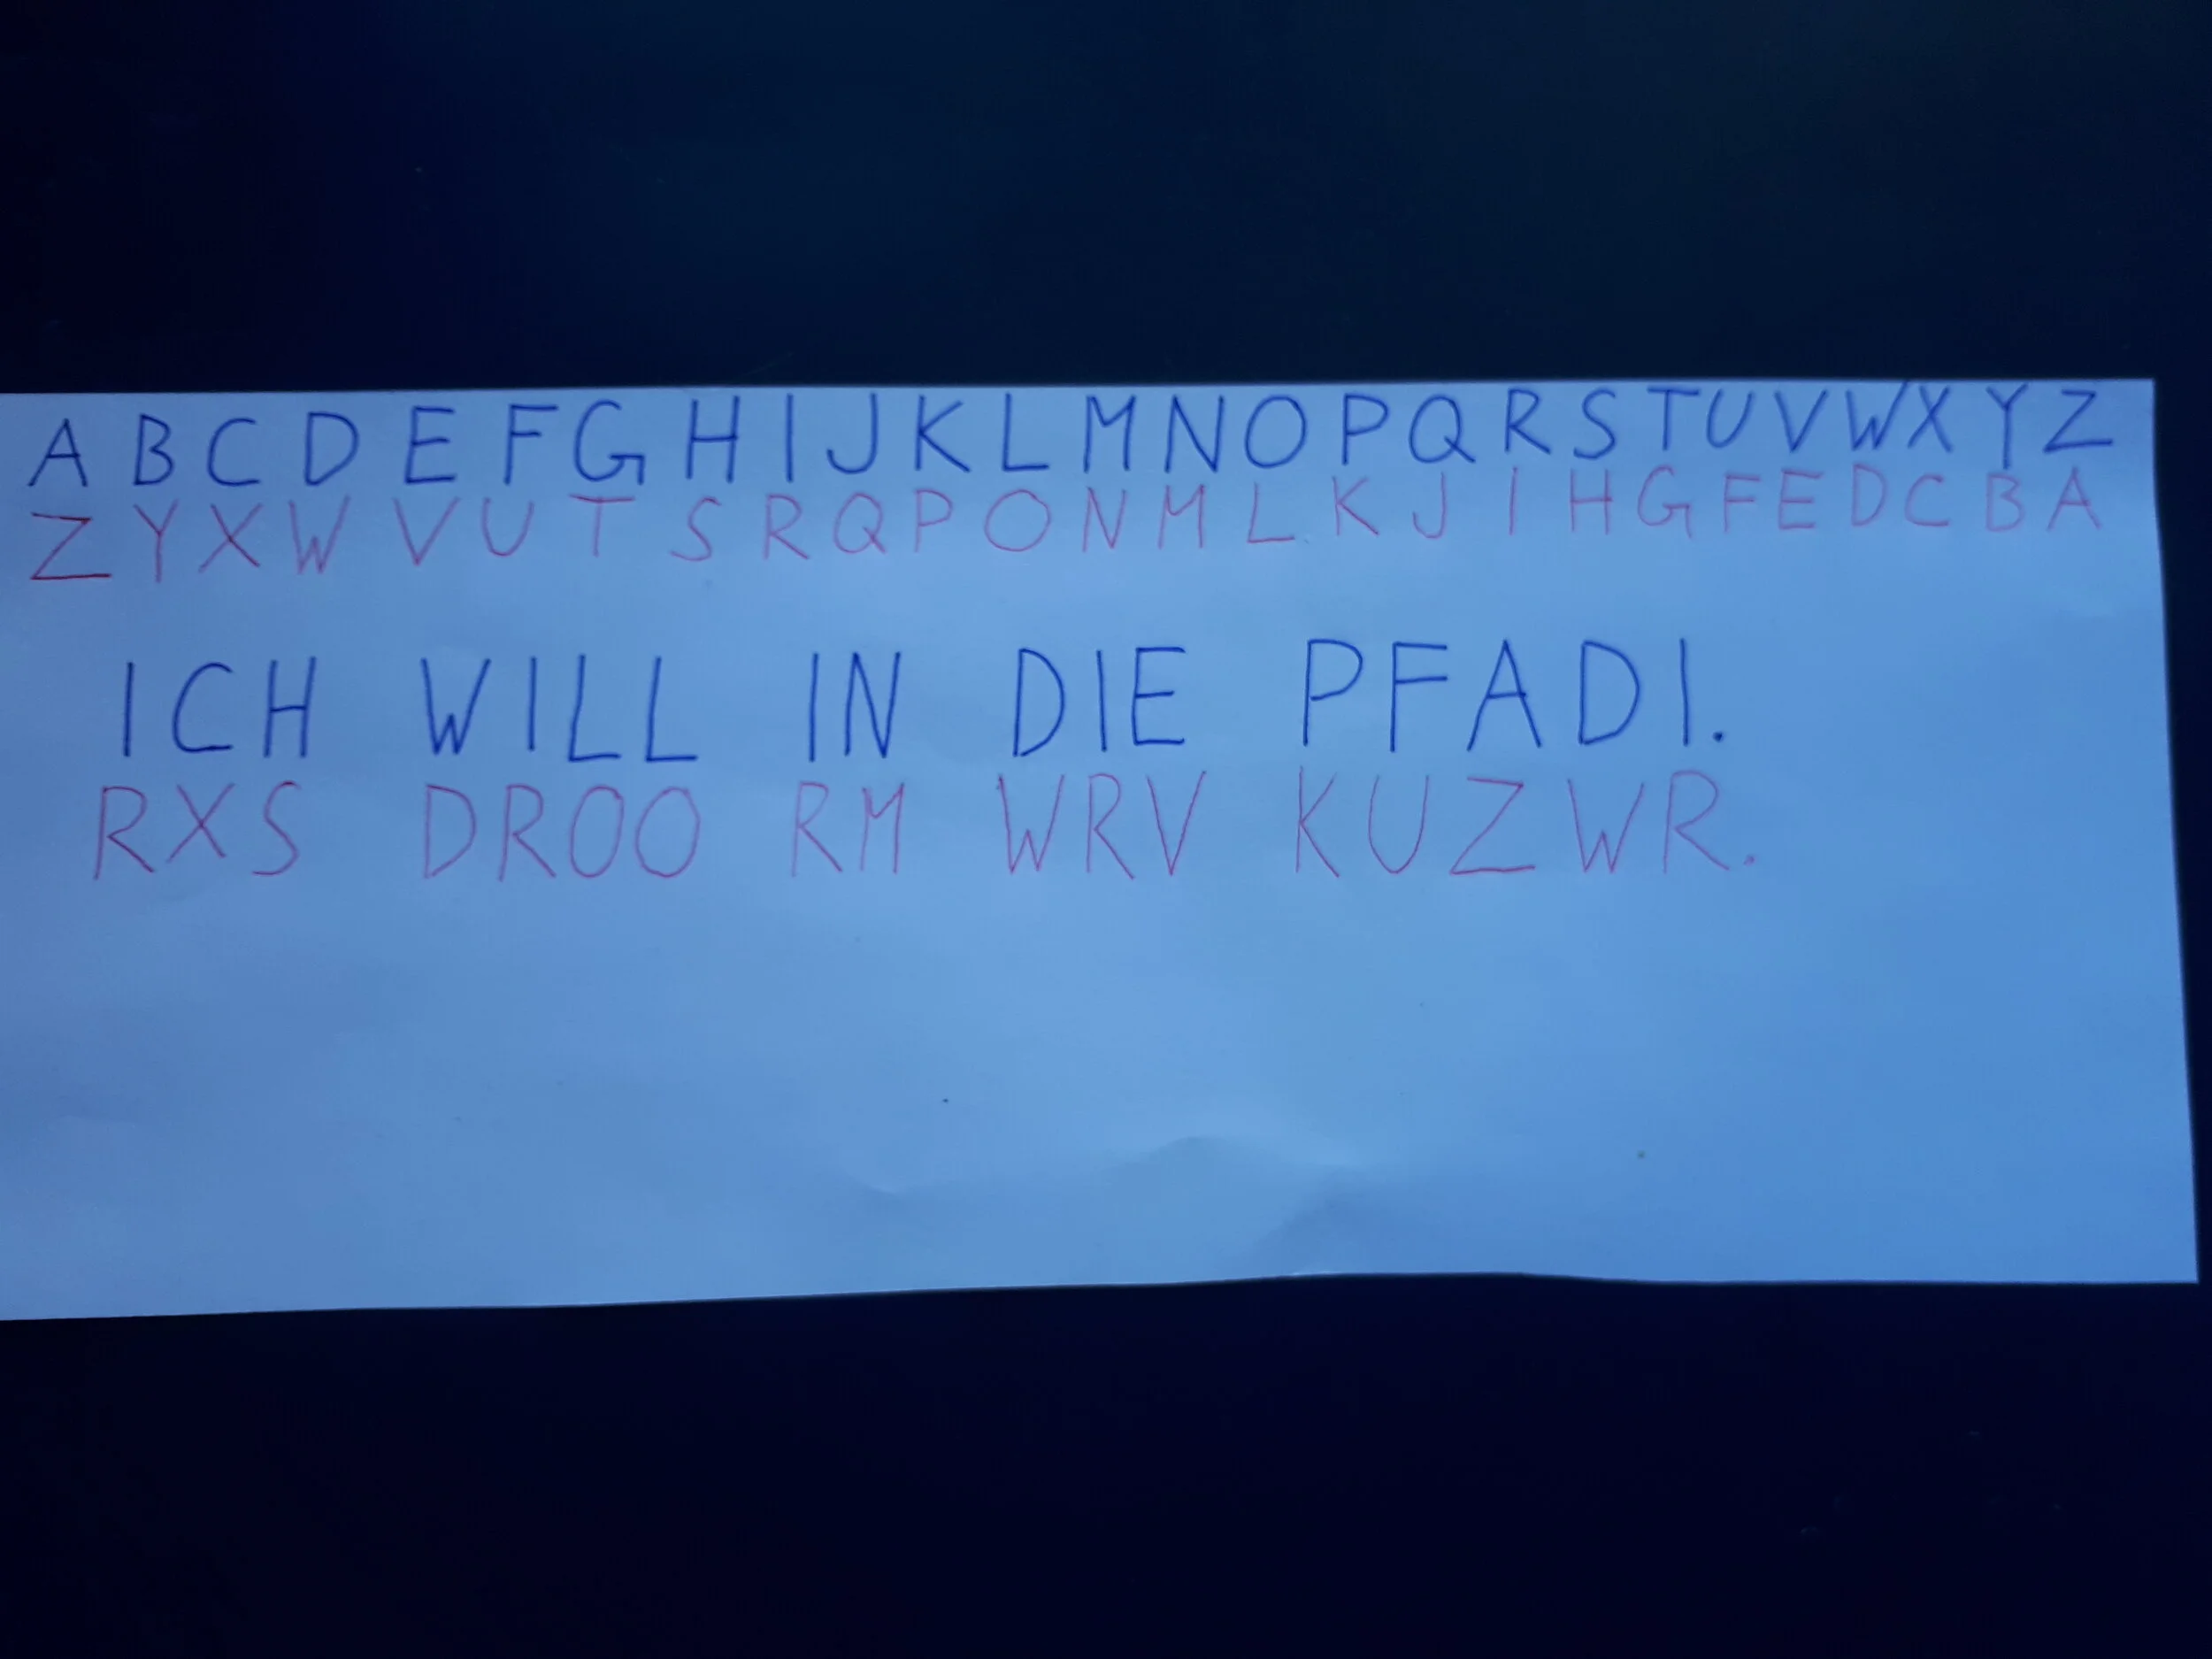 A B C D E F G H I J K L M N O P Q R S T U V W X Y Z
Z Y X W V U T S R Q P O N M L K J I H G F E D C B A
ICH WILL IN DIE PFADI.
RXS DROO RM WRV KUZWR.